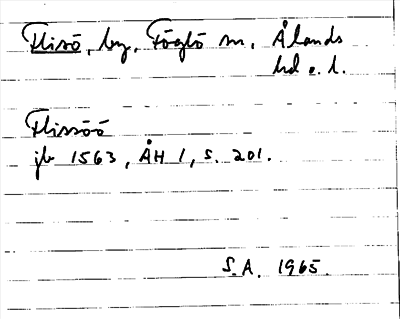 Flisö, by, Föglö sn, Ålands
hd o. l.
Flissöö
jb 1563, ÅH 1, s. 201.
S.A. 1965.